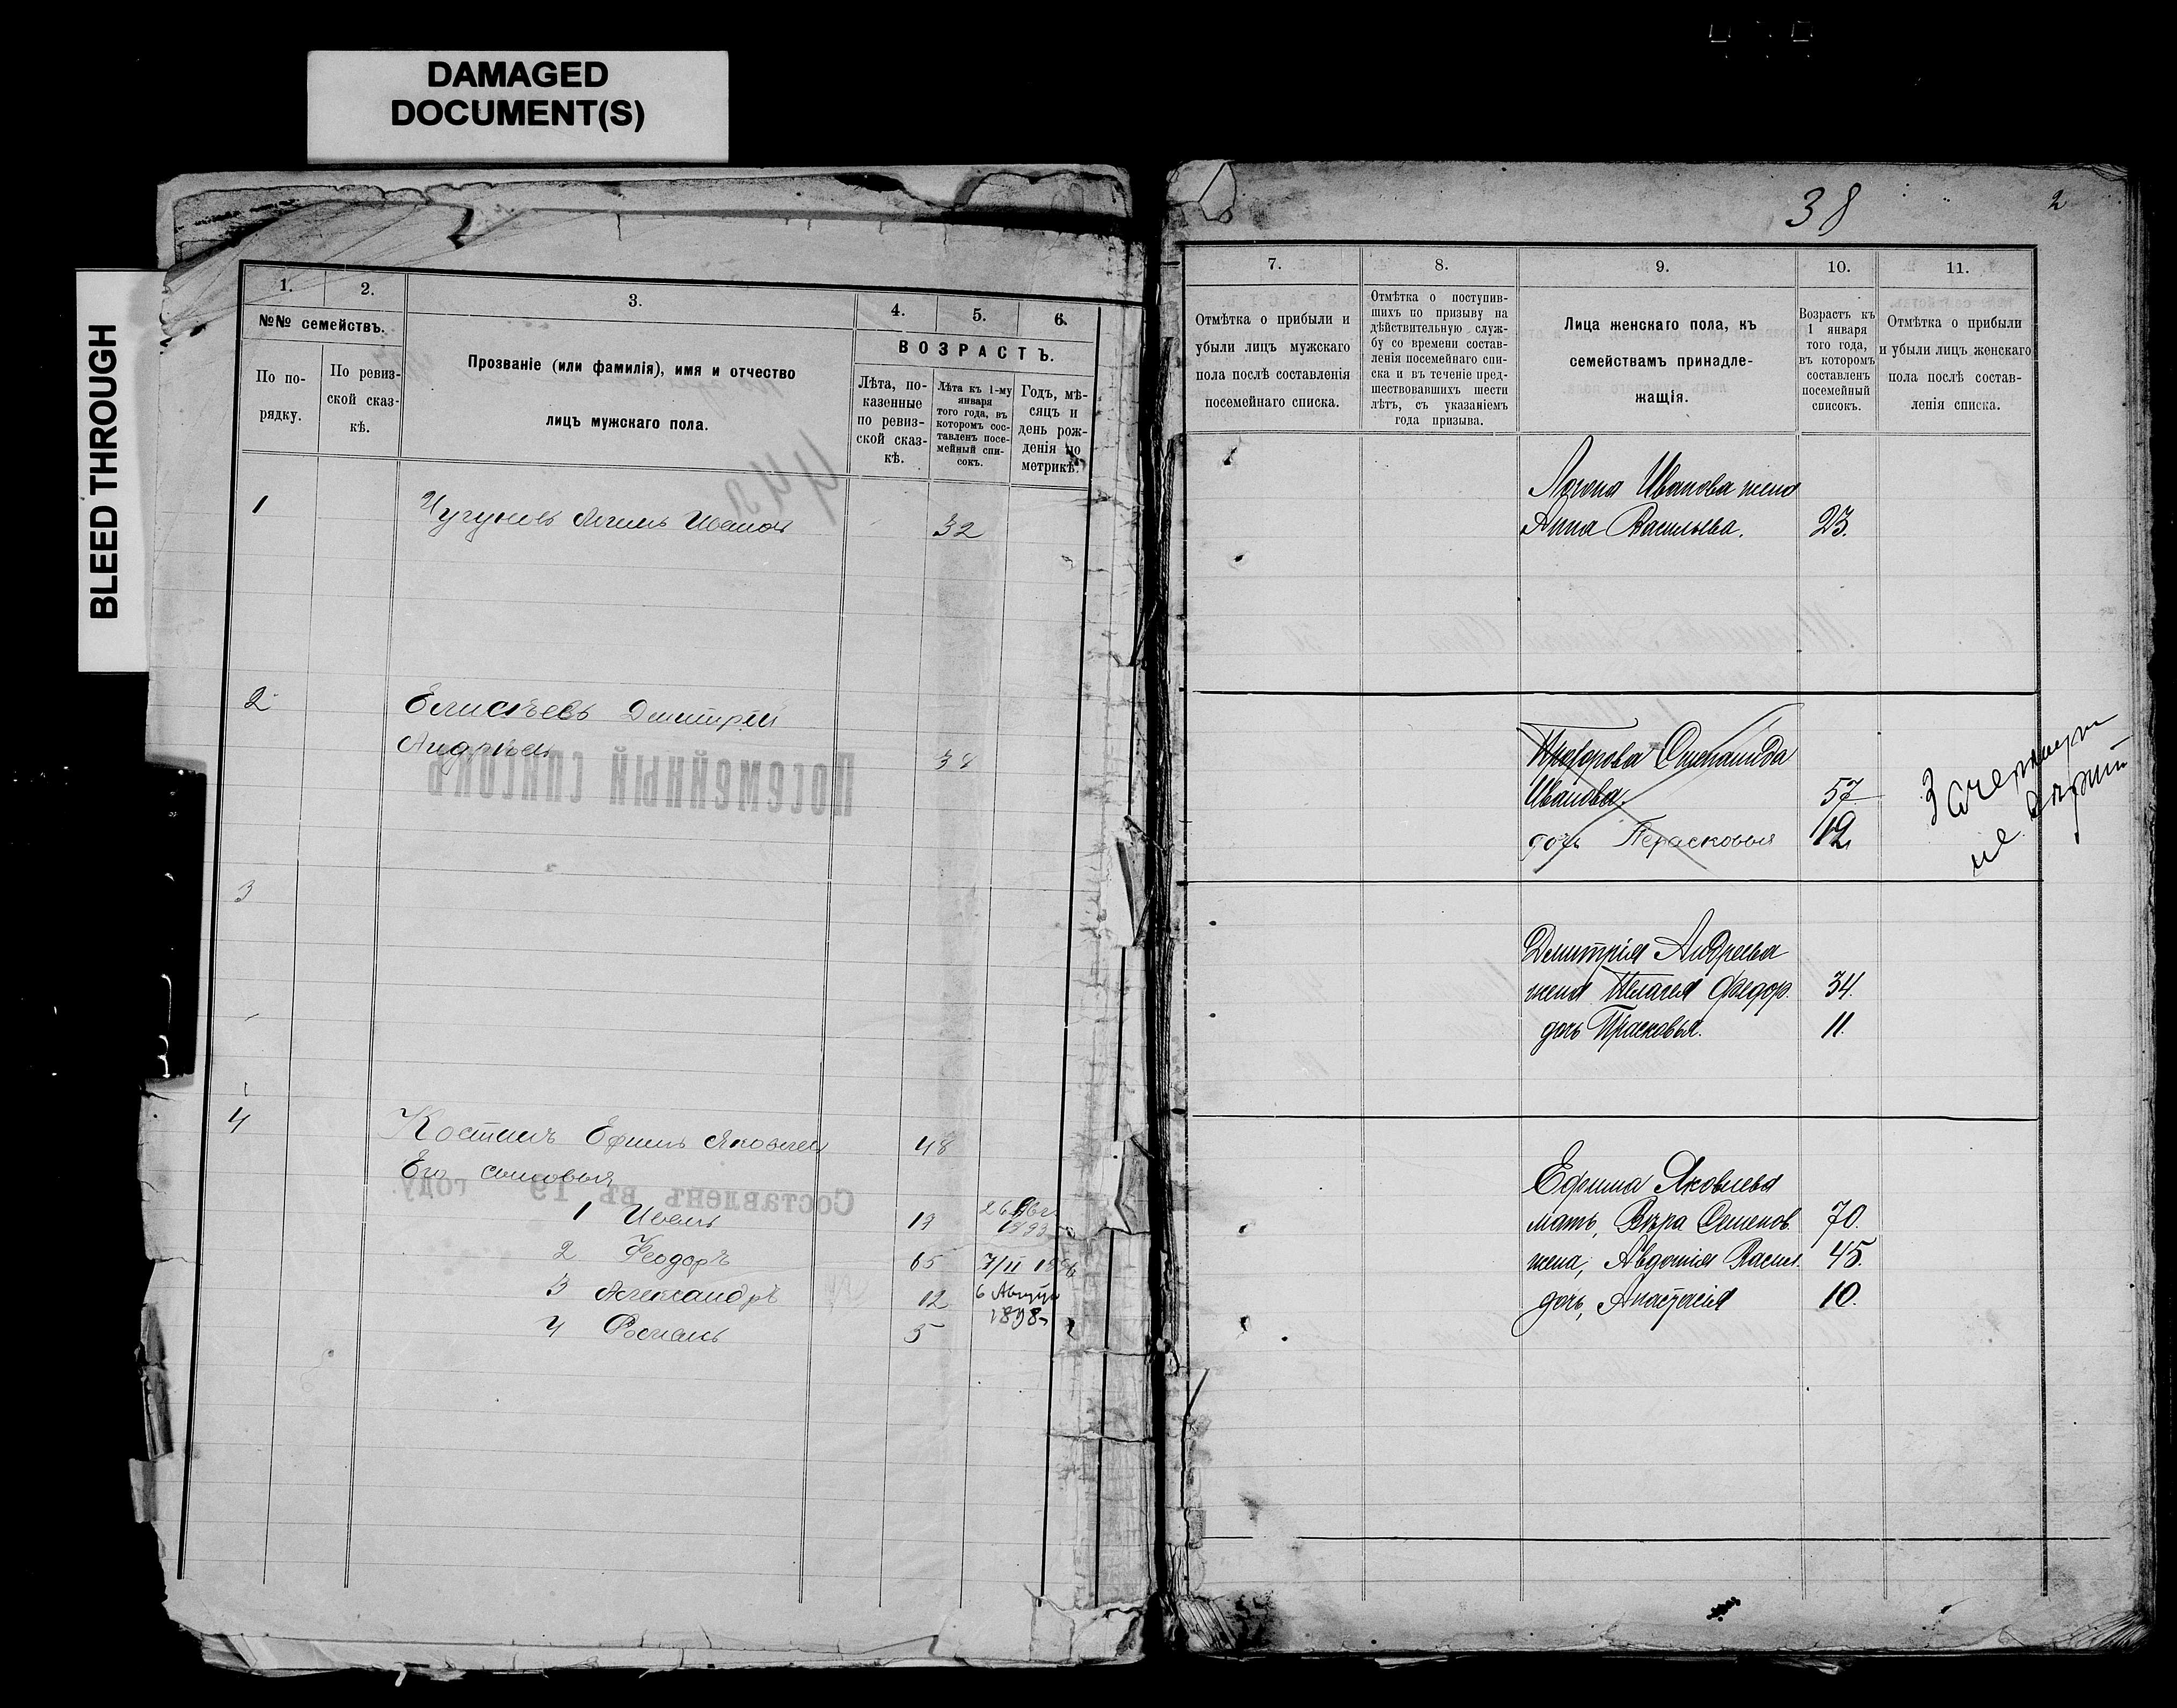 DAMAGED
DOCUMENT(S)
BLEED THROUGH
1.
2.
3.
4.
5.
6.
№№ семействъ.
По по-
рядку.
По ревиз-
ской сказ-
кѣ.
Прозваніе (или фамилія), имя и отчество
лицъ мужскаго пола.
ВОЗРАСТЪ.
Лѣта, по-
казенные
по ревиз-
ской сказ-
кѣ.
Лѣта къ 1-му
января
того года, въ
которомъ сос-
тавленъ посе-
мейный спи-
сокъ.
Годъ, мѣ-
сяцъ и
день рож-
денія по
метрикѣ.
1
Чугуновъ Иванов
32
2
Елисѣевъ Дмитрій
Андреевъ
38
Посемейный списокъ
3
4
Костинъ Ефимъ Яковлев
48
Его сыновья
Составленъ въ 19 году.
1 Иванъ 13
1893
2 Феодоръ 7/II
3 Александръ 12 6 Август
1898
4 Романъ 5
38
2
7.
8.
9.
10.
11.
Отмѣтка о прибыли и
убыли лицъ мужскаго
пола послѣ составленія
посемейнаго списка.
Отмѣтка о поступив-
шихъ по призыву на
дѣйствительную служ-
бу со времени состав-
ленія посемейнаго спи-
ска и въ теченіе пред-
шествовавшихъ шести
лѣтъ, съ указаніемъ
года призыва.
Лица женскаго пола, къ
семействамъ принадле-
жащія.
Возрастъ къ
1 января
того года,
въ которомъ
составленъ
посемейный
списокъ.
Отмѣтка о прибыли
и убыли лицъ женскаго
пола послѣ состав-
ленія списка.
Иванова жена
Анна Васильева. 23.
Прохорова Степанида
Иванова. 57
дочь Парасковья 19
Зачеркнут
не
Дмитрія Андреева
жена Пелагея Федор. 34.
дочь Прасковья. 11.
Ефима Яковлева
мать, Вѣра Семенов. 70.
жена, Авдотія Васил. 45.
дочь, Анастасія 10.